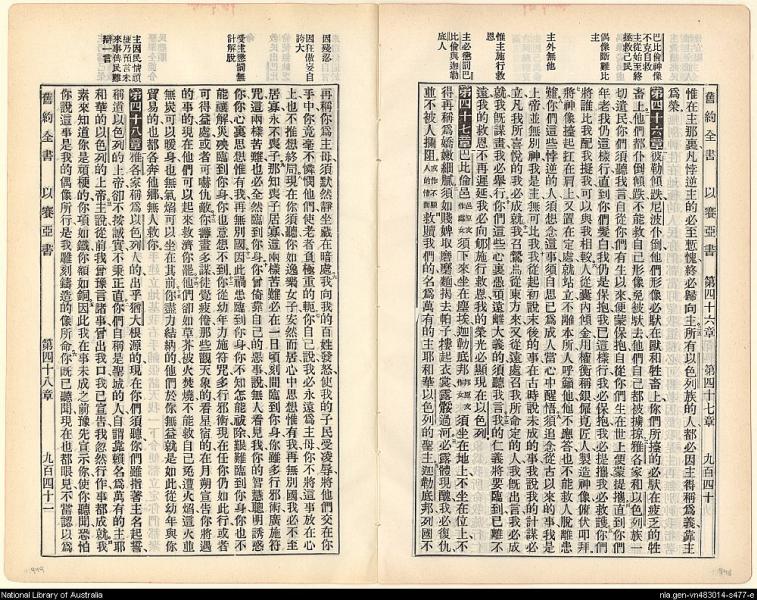 舊約全書 以賽亞書 第四十六章 第四十七章 九百四十
巴比倫神像不克自救
主從始至終拯救己民
偶像斷難比主
主外無他
惟主施行救恩
主必懲罰巴比倫與迦勒底人
惟在主那裏凡悖逆主的必至慙愧終必歸向主所有以色列族的人都必因主得稱為義靠主
為榮
第四十六章彼勒傾跌尼波仆倒他們形像必馱在獸和牲畜上你們所擡的必馱在疲乏的牲
畜上他們都仆倒傾跌不能救自己形像免被馱去他們自己都被擄掠雅各家和以色列族一
切遺民你們須聽我言自從你們有生以來便蒙保抱自從你們生在世上便蒙提攜直到你們
年老我仍這樣行直到你們髮白我仍是保抱我已這樣行我必保抱我必提攜我必救護你們
將誰比我配我擬我可以與我相較人從囊內傾金用權衡稱銀僱覓匠人製造神像俯伏叩拜
將神像擡起扛在肩上又置在定處就站立不離本所人呼籲他他不應答也不能救人脫離患
難你們這些悖逆的人須想念這事須自思已為成人當心中醒悟須追念從古以來的事我是
上帝並無別神我是主無可比我我從起初說末後的事在古時說未成的事我說我的計謀必
立凡我所喜悅的我必成就我召鷙鳥從東方來又從遠處召我所命定的人我既出言我必成
就我既謀畫我必舉行你們這些心裏愚頑遠離大義的須聽我言我的仁義將要臨到已離不
遠我的救恩不再遲延我必向郇施行救恩我的榮光必顯現在以色列
第四十七章巴比倫邑
須下來坐在塵埃迦勒底邦
須坐在地上不坐在位上不
得再稱為嬌嫩細膩須如賤婢取磨磨麵揭去帕子摟起衣裳露骽過河必露體現醜我必復仇
並不被人攔阻
救贖我們的名為萬有的主耶和華以色列的聖主迦勒底邦列國不
舊約全書 以賽亞書 第四十八章 九百四十一
因殘忍
因狂傲妄自誇大
受主懲罰無計解脫
主因民情頑梗乃預言未來事俾民難辯一言
再稱你為主母須默然靜坐藏在暗處我向我的百姓發怒使我的子民受凌辱將他們交在你
手中你竟毫不憐憫他們使老者負極重的軛你自己說我必永遠為主母你不將這事放在心
上也不推想終局現在你須聽你如逸樂女子安然而居心中思想惟有我再無別國我必不至
居寡永不喪子那知喪子居寡這兩樣苦難必在一日頃刻間臨到你身你雖多行邪術廣施符
咒這兩樣苦難也必全然臨到你身你曾倚靠自己的惡事說無人看見我你的智慧聰明誘惑
你你心裏思想惟有我再無別國因此禍患臨到你身你不知怎能祓除患難臨到你身你也不
能禳解災殃臨到你身你也意想不到你從幼年力施符咒多行邪術現在任你仍如此行或者
可得益處或者可嚇仇敵你籌畫多謀徒覺疲倦那些觀天象的看星宿的在月朔宣告你將遇
的事的現在他們可以起來救濟你罷他們卻如草芥被火焚燬不能救自己免遭火焰這火並
無炭可以煖身也無氣焰可以坐在其前你盡力結納的他們於你無益就是如此從幼年與你
貿易的也都各奔他鄉無人救你
第四十八章雅各家稱為以色列人的出乎猶大根源的現在你們須聽你們雖指著主名起誓
稱道以色列的上帝卻不按誠實不秉正直你們自稱是聖城的人自謂靠賴名為萬有的主耶
和華的以色列的上帝主說從前我曾豫言諸事曾出我口我已宣告我忽然行作事都成就我
素來知道你是頑梗的你項如鐵你額如銅因此我在事未成之前豫先宣示你使你聽聞恐怕
你說這事是我的偶像所行是我雕刻鑄造的像所命你既已聽聞現在也都眼見不當認以為
National Library of Australia
nla.gen-vn483014-s477-e